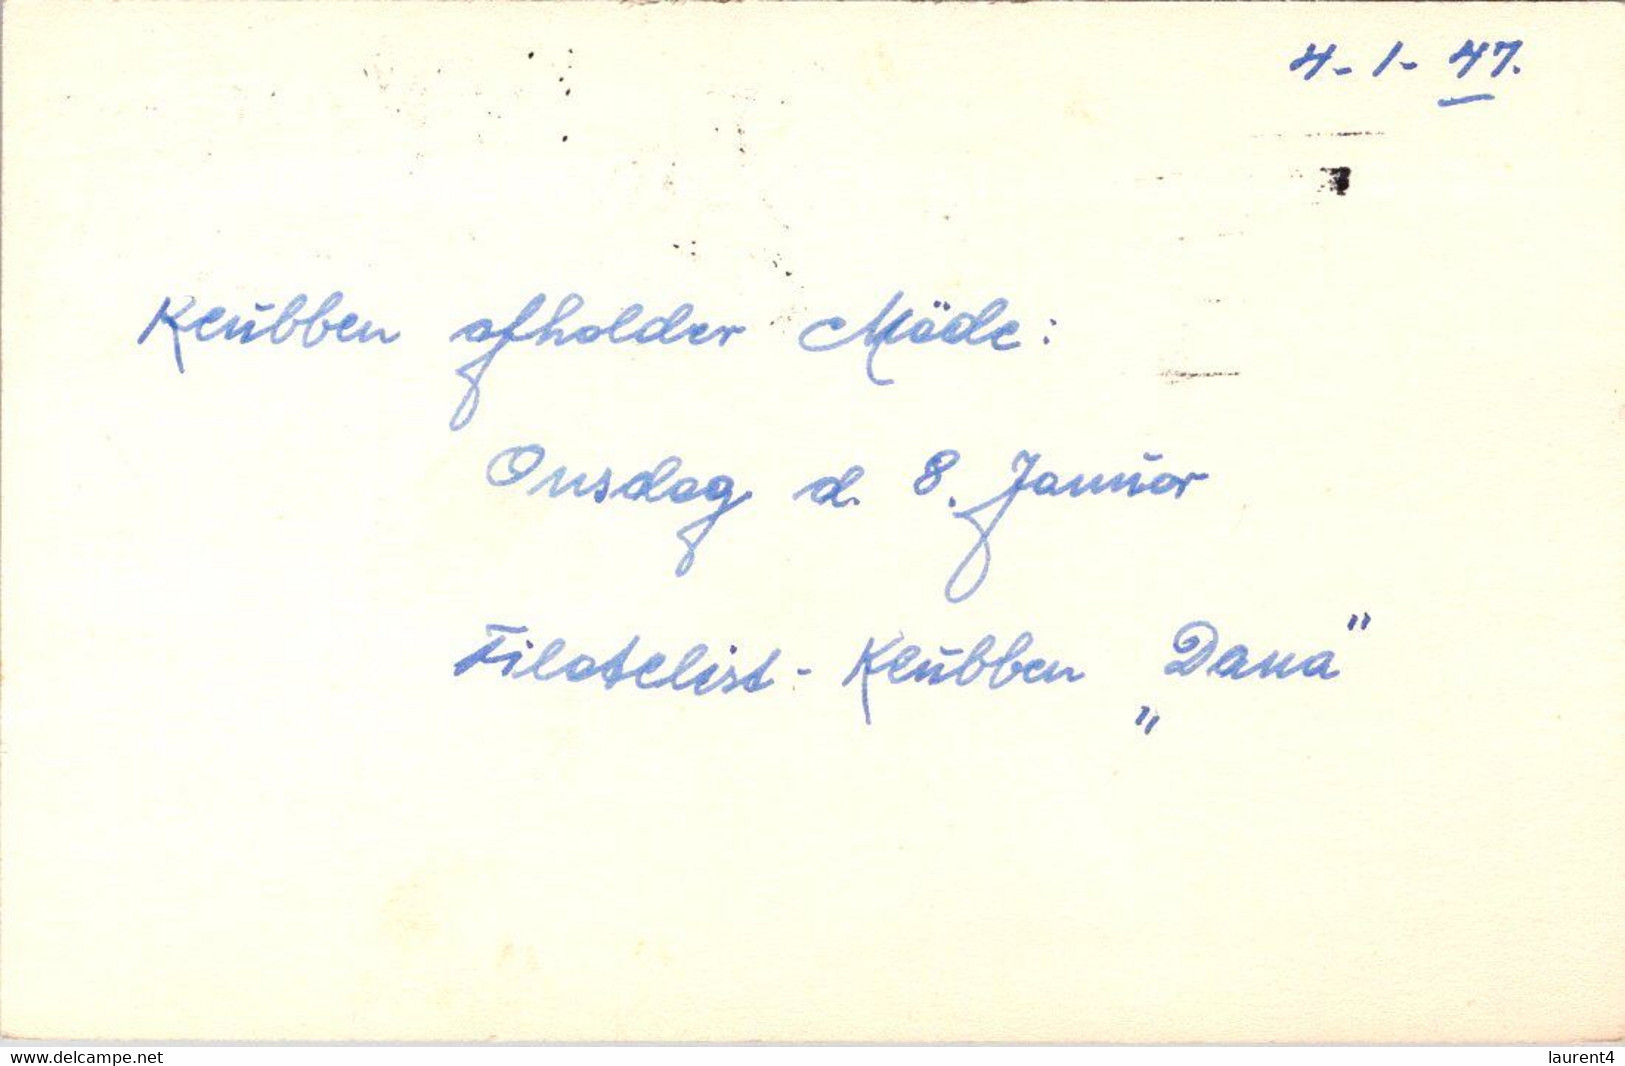 4-1-47.
Klubben afholder Möde:
Onsdag d. 8. Januar
Filatelist-Klubben „Dana"
www.delcampe.net
laurent4